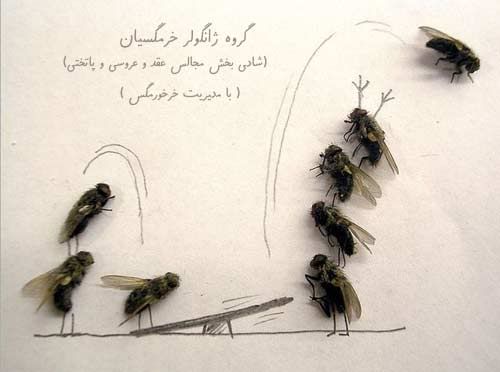 گروه ژانگولر خرمگسیان
(شادی بخش مجالس عقد و عروسی و پاتختی)
( با مدیریت خرخورمگس )